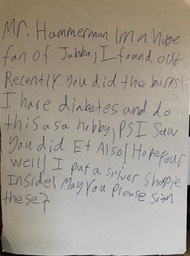 Mr. Hammerman Im a huge
fan of Jabba, I found out
Recently you did the burps!
I have diabetes and do
this as a hobby, PS I Saw
You did Et Also! Hope your
well! I put a silver shapie
Inside! May you please sign
these?